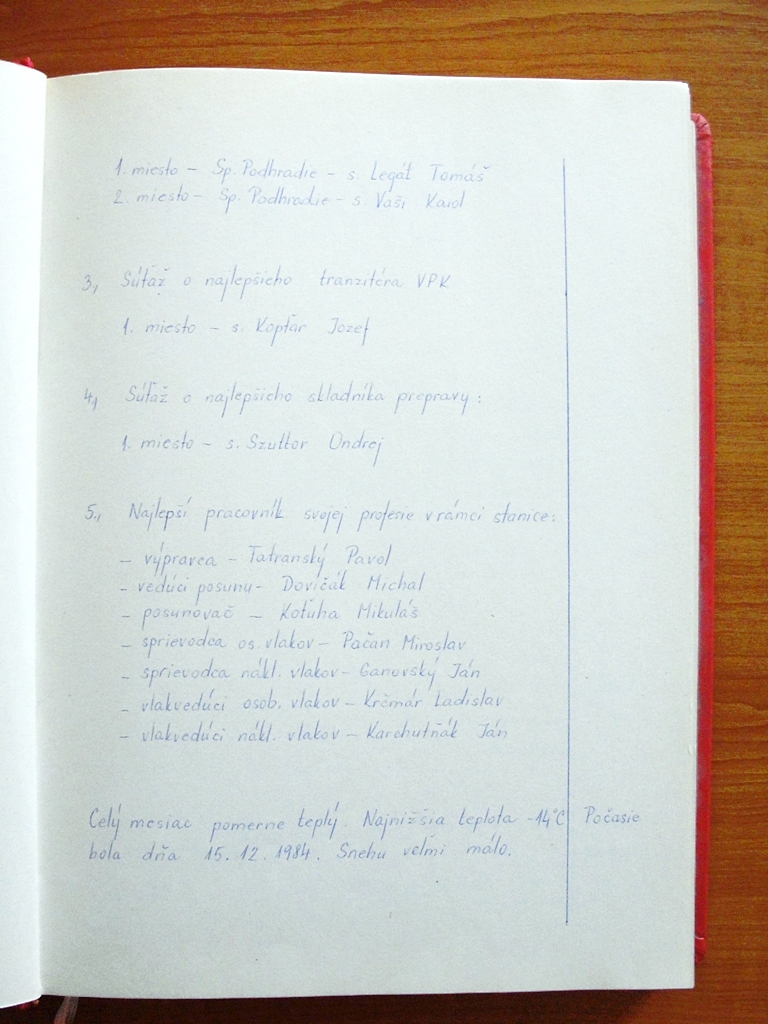 1. miesto - Sp. Podhradie - s. Legát Tomáš
2. miesto - Sp. Podhradie - s. Vaši Karol
3, Súťaž o najlepšieho tranzitéra VPK
1. miesto - s. Kopťár Jozef
4, Súťaž o najlepšieho skladníka prepravy:
1. miesto - s. Szuttor Ondrej
5., Najlepší pracovník svojej profesie v rámci stanice:
- výpravca - Tatranský Pavol
- vedúci posunu - Dovičák Michal
- posunovač - Koťuha Mikuláš
- sprievodca os. vlakov - Pačan Miroslav
- sprievodca nákl. vlakov - Ganovský Ján
- vlakvedúci osob. vlakov - Krčmár Ladislav
- vlakvedúci nákl. vlakov - Karchutňák Ján
Celý mesiac pomerne teplý. Najnižšia teplota -14°C Počasie
bola dňa 15.12.1984. Snehu veľmi málo.